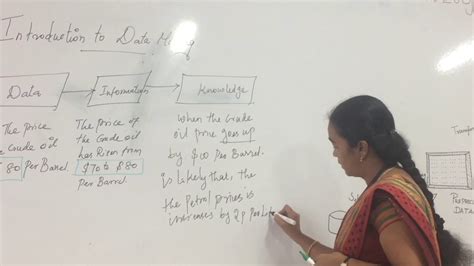 Introduction to Data Mining
Data
Information
Knowledge
The Price
Crude oil
$80 Per Barrel.
The Price of
the Crude oil
has Risen from
$70 to $80
Per Barrel.
when the Crude
oil price goes up
by $10 Per Barrel.
is likely that, the
the Petrol prices is
increases by
Transfor
PREPROC
DATA